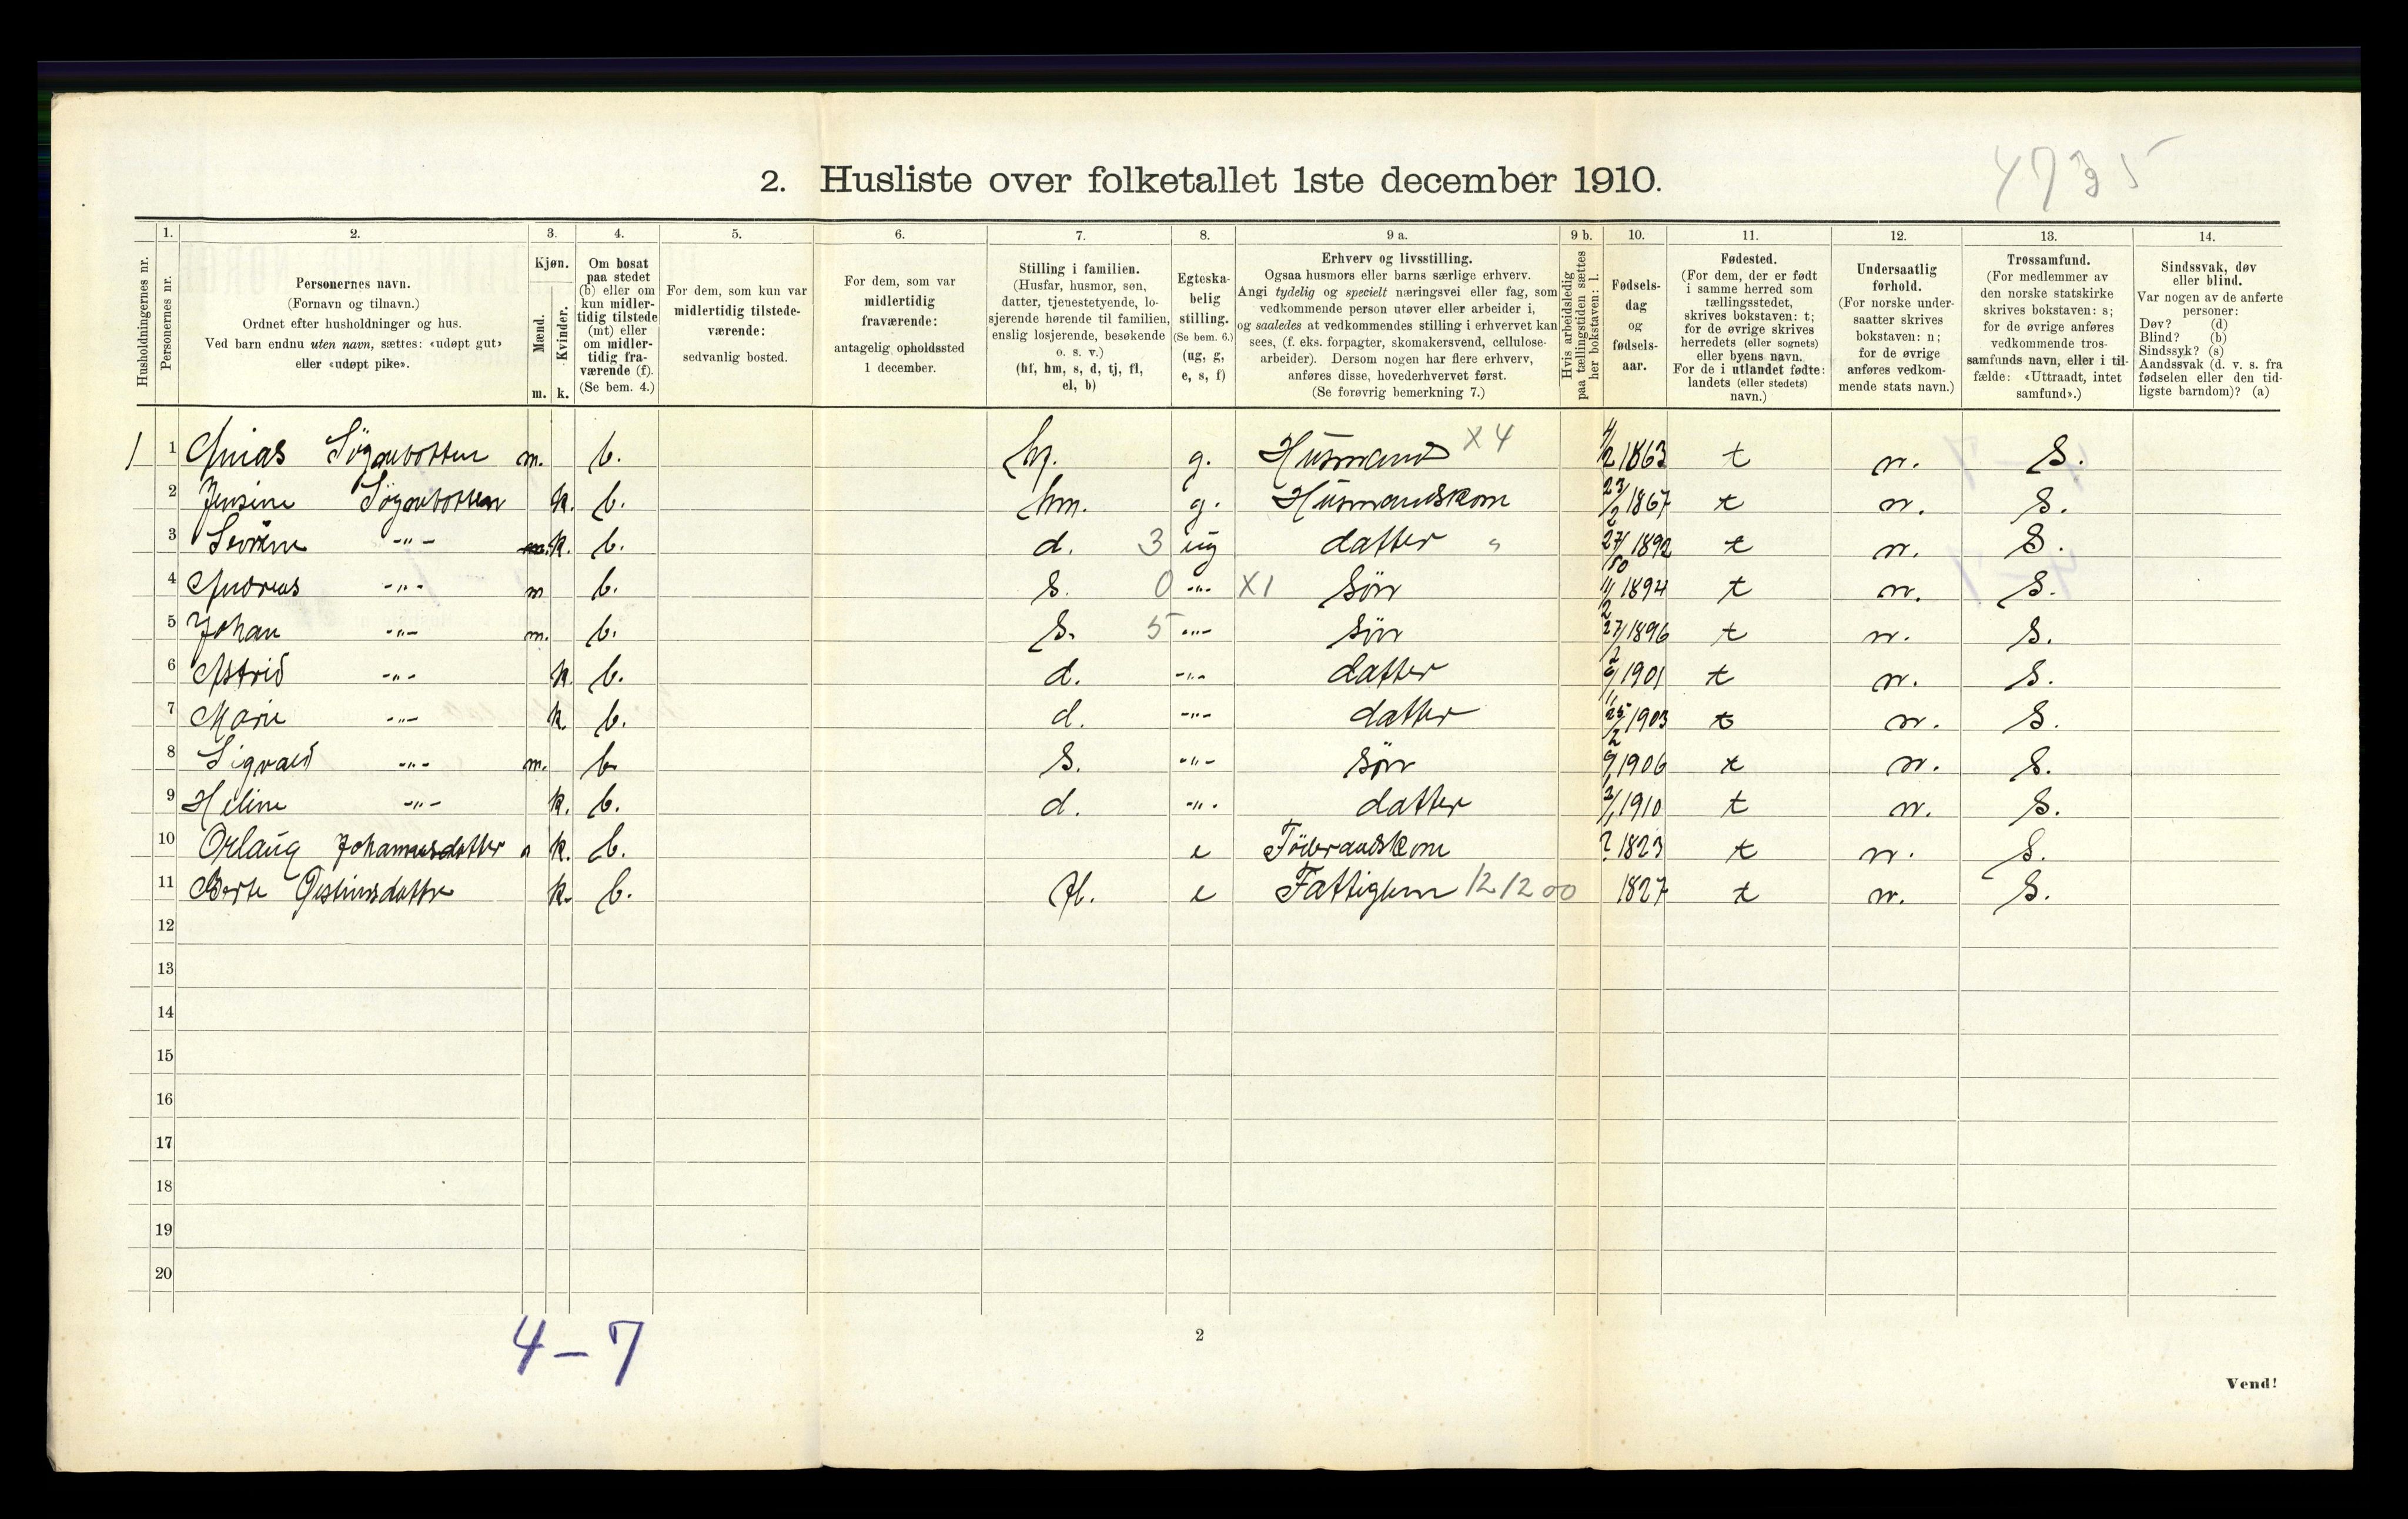 4735
2. Husliste over folketallet 1ste december 1910.
Husholdningernes nr.
1. Personernes nr.
2. Personernes navn. (Fornavn og tilnavn.) Ordnet efter husholdninger og hus. Ved barn endnu uten navn, sættes: «udøpt gut» eller «udøpt pike».
3. Kjøn. Mænd. m. Kvinder. k.
4. Om bosat paa stedet (b) eller om kun midlertidig tilstede (mt) eller om midlertidig fraværende (f). (Se bem. 4.)
5. For dem, som kun var midlertidig tilstedeværende: sedvanlig bosted.
6. For dem, som var midlertidig fraværende: antagelig opholdssted 1 december.
7. Stilling i familien. (Husfar, husmor, søn, datter, tjenestetyende, losjerende hørende til familien, enslig losjerende, besøkende o. s. v.) (hf, hm, s, d, tj, fl, el, b)
8. Egteskabelig stilling. (Se bem. 6.) (ug, g, e, s, f)
9 a. Erhverv og livsstilling. Ogsaa husmors eller barns særlige erhverv. Angi tydelig og specielt næringsvei eller fag, som vedkommende person utøver eller arbeider i, og saaledes at vedkommendes stilling i erhvervet kan sees, (f. eks. forpagter, skomakersvend, cellulosearbeider). Dersom nogen har flere erhverv, anføres disse, hovederhvervet først. (Se forøvrig bemerkning 7.)
9 b. Hvis arbeidsledig paa tællingstiden sættes her bokstaven: l.
10. Fødselsdag og fødselsaar.
11. Fødested. (For dem, der er født i samme herred som tællingsstedet, skrives bokstaven: t; for de øvrige skrives herredets (eller sognets) eller byens navn. For de i utlandet fødte: landets (eller stedets) navn.)
12. Undersaatlig forhold. (For norske undersaatter skrives bokstaven: n; for de øvrige anføres vedkommende stats navn.)
13. Trossamfund. (For medlemmer av den norske statskirke skrives bokstaven: s; for de øvrige anføres vedkommende trossamfunds navn, eller i tilfælde: «Uttraadt, intet samfund».)
14. Sindssvak, døv eller blind. Var nogen av de anførte personer: Døv? (d) Blind? (b) Sindssyk? (s) Aandssvak (d. v. s. fra fødselen eller den tidligste barndom)? (a)
1 1 m. b. hf. g. Husmand X4 4/2 1863 t n. S.
2 Jensine k. b. hm. g. Husmandskone 23/2 1867 t n. S.
3 -"- m. k. b. d. 3 ug datter 27/10 1892 t n. S.
4 Andreas -"- m b. S. 0 -"- X1 Sön 11/2 1894 t n. S.
5 Johan -"- m. b. S. 5 -"- Sön 27/2 1896 t n. S.
6 Astrid -"- k. b. d. -"- datter 9/1 1901 t n. S.
7 Marie -"- k. b. d. -"- datter 25/2 1903 t n. S.
8 Sigvald -"- m. b. S. -"- Sön 1906 t n. S.
9 Heline -"- k. b. d. -"- datter 1910 t n. S.
10 Orlaug Johannesdatter k. b. e Föderaadskone ? 1823 t n. S.
11 Berte k. b. fl. e Fattiglem 12 12 00 1827 t n. S.
12
13
14
15
16
17
18
19
20
4-7
2
Vend!